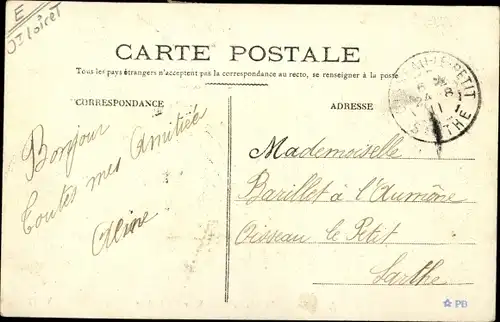 E
Dt Loiret
CARTE POSTALE
Tous les pays étrangers n'acceptent pas la correspondance au recto, se renseigner à la poste
CORRESPONDANCE
ADRESSE
Bonjour
Toutes mes Amitiés
Aline
Mademoiselle
Barillet à l'Aumône
Oisseau le Petit
Sarthe
LE-PETIT
SARTHE
PB